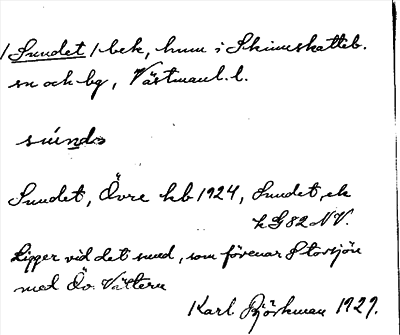 /Sundet/ bek, hum i Skinnskatteb.
sn och bg, Västmanl. l.
Sundet, Övre kb 1924, Sundet, ek
k G82 NV.
Ligger vid det sund, som förenar Storsjön
med Öv. Vättern
Karl Björkman 1929.